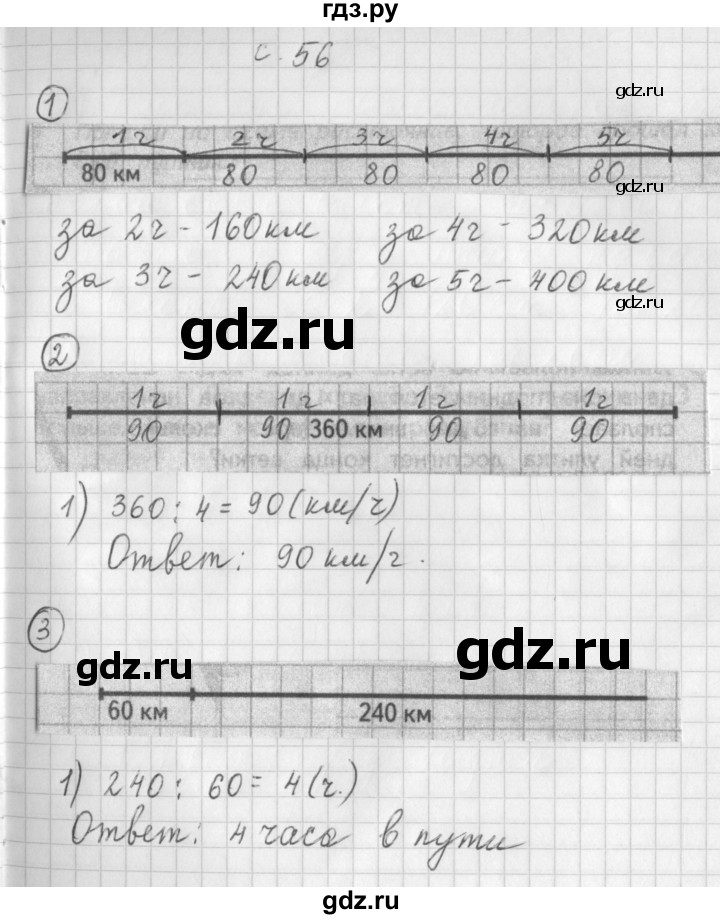 гдз.ру
с. 56
gdz.ru
1
1ч 2ч 3ч 4ч 5ч
80 км 80 80 80 80
gdz.ru
за 2ч - 160км за 4ч - 320км
за 3ч - 240км за 5ч - 400км
gdz.ru
gdz.ru
2
1ч 1ч 1ч 1ч
90 90 360 км 90 90
дней улитка достигнет конца ветки?
1) 360 : 4 = 90 (км/ч)
Ответ: 90 км/ч.
3
gdz.ru
gdz.ru
60 км 240 км
1) 240 : 60 = 4 (ч.)
Ответ: 4 часа в пути
gdz.ru